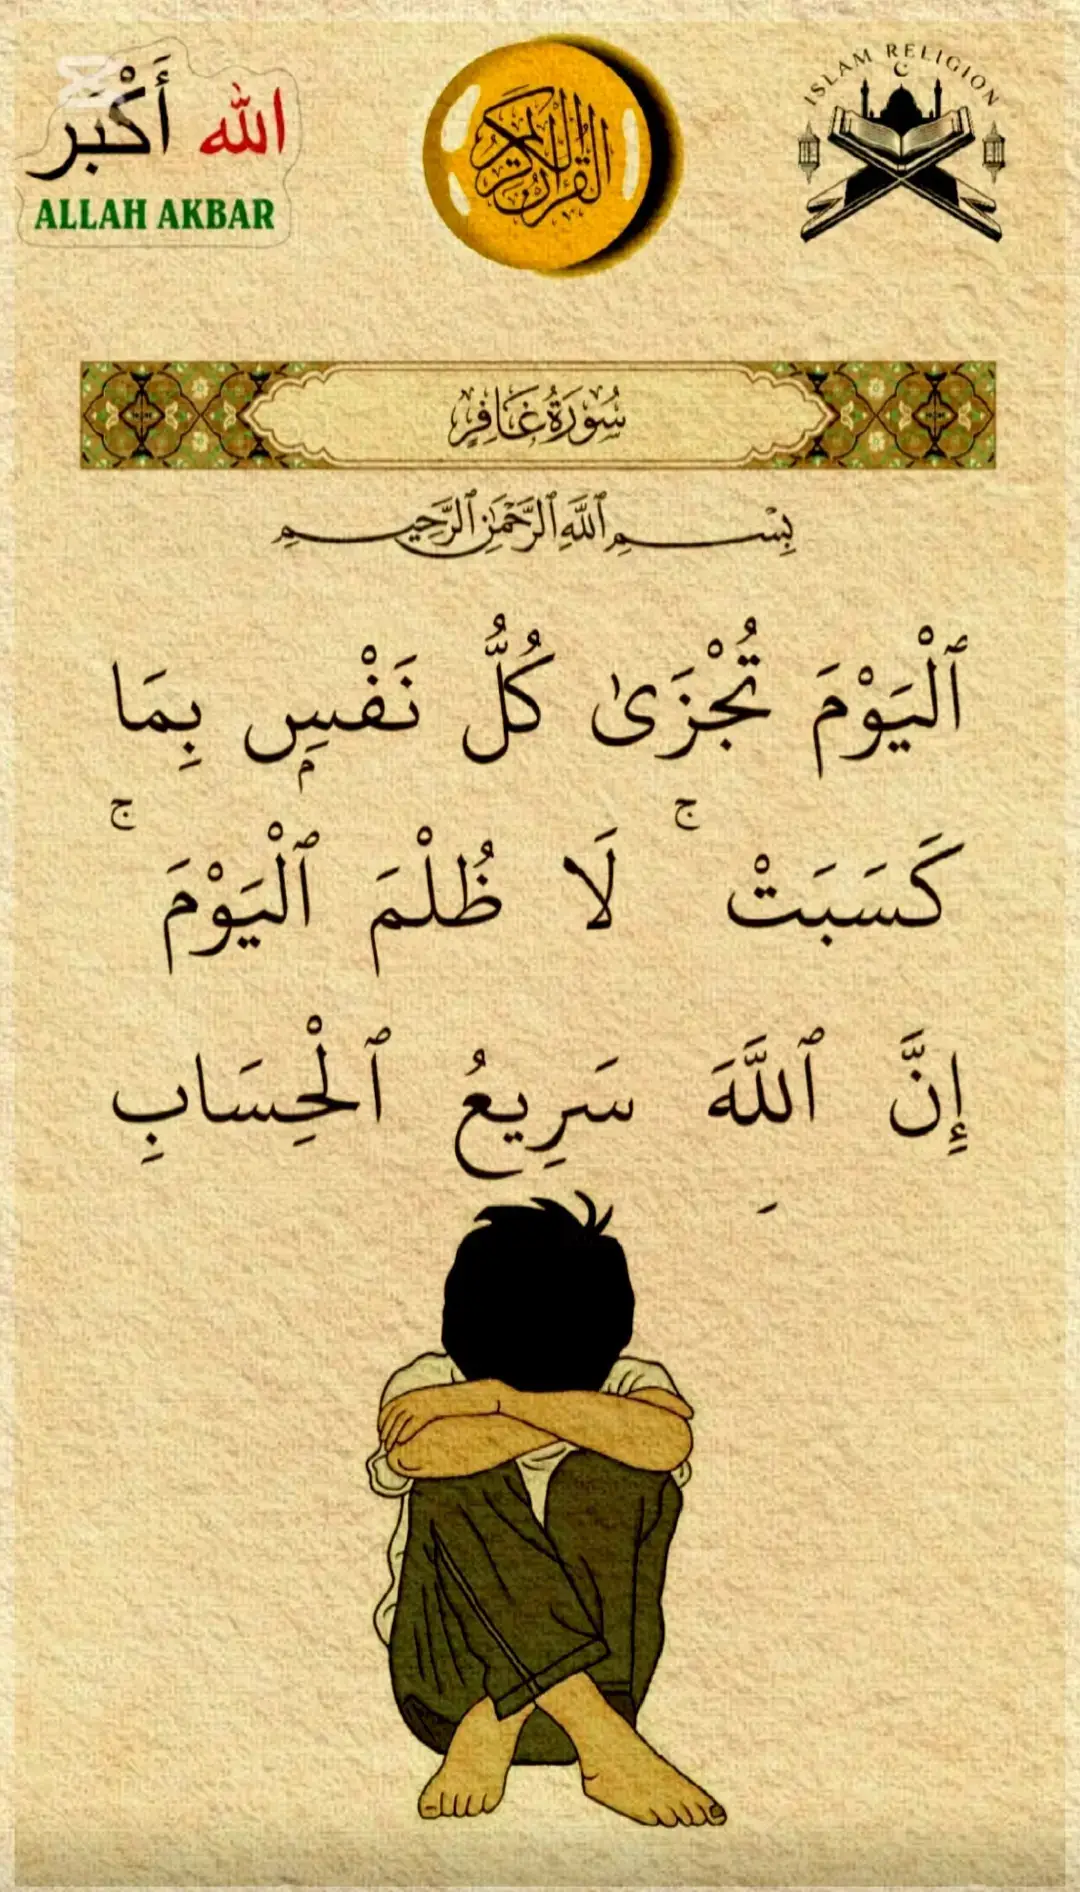 الله أَكْبَر
ALLAH AKBAR
القرآن الكريم
ISLAM RELIGION
سُورَةُ غَافِرٍ
بِسْمِ ٱللَّهِ ٱلرَّحْمَٰنِ ٱلرَّحِيمِ
ٱلْيَوْمَ تُجْزَىٰ كُلُّ نَفْسٍۭ بِمَا
كَسَبَتْ ۚ لَا ظُلْمَ ٱلْيَوْمَ ۚ
إِنَّ ٱللَّهَ سَرِيعُ ٱلْحِسَابِ